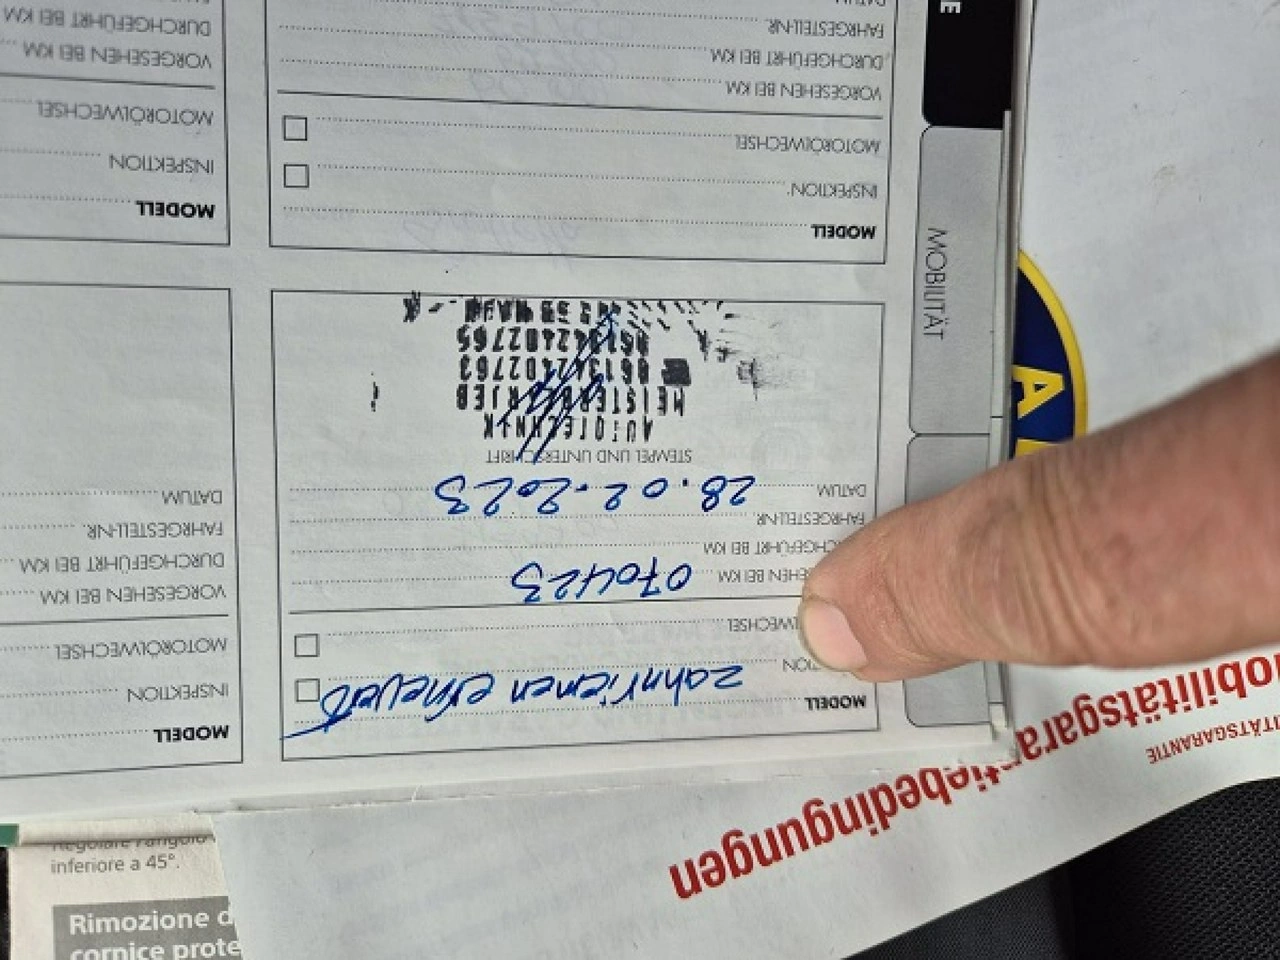 MODELL
zahnriemen erneuert
VORGESEHEN BEI KM 070423
DURCHGEFÜHRT BEI KM
FAHRGESTELL-NR.
DATUM 28.02.2023
STEMPEL UND UNTERSCHRIFT
AUTOTECHNIK
MEISTERBETRIEB
061342402763
061342402765
MODELL
INSPEKTION
MOTORÖLWECHSEL
VORGESEHEN BEI KM
DURCHGEFÜHRT BEI KM
FAHRGESTELL-NR.
DATUM
MODELL
INSPEKTION
MOTORÖLWECHSEL
VORGESEHEN BEI KM
DURCHGEFÜHRT BEI KM
FAHRGESTELL-NR.
DATUM
MODELL
INSPEKTION
MOTORÖLWECHSEL
VORGESEHEN BEI KM
DURCHGEFÜHRT BEI KM
MOBILITÄT
inferiore a 45°.
Rimozione d
cornice prote
Mobilitätsgarantiebedingungen